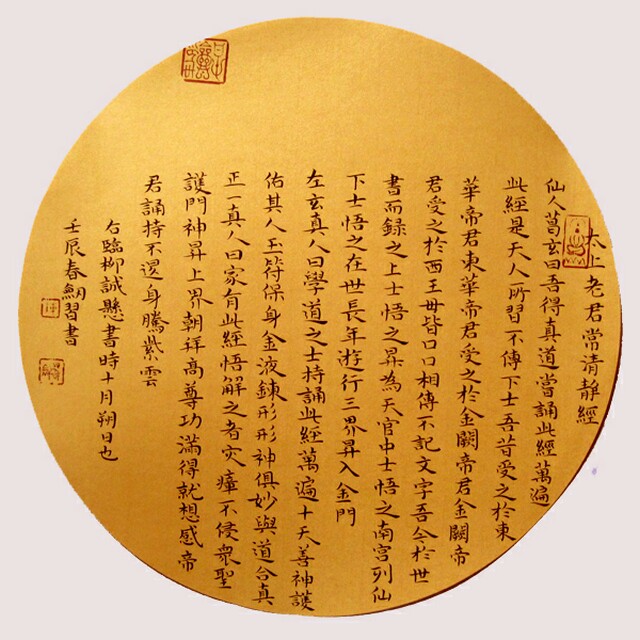 太上老君常清靜經
仙人葛玄曰吾得真道當誦此經萬遍
此經是天人所習不傳下士吾昔受之於東
華帝君東華帝君受之於金闕帝君金闕帝
君受之於西王母皆口口相傳不記文字吾今於世
書而錄之上士悟之昇為天官中士悟之南宮列仙
下士悟之在世長年遊行三界昇入金門
左玄真人曰學道之士持誦此經萬遍十天善神護
佑其人玉符保身金液鍊形形神俱妙與道合真
正一真人曰家有此經悟解之者灾瘴不侵眾聖
護門神昇上界朝拜高尊功滿得就想感帝
君誦持不退身騰紫雲
右臨柳誠懸書時十月朔日也
壬辰春 習書